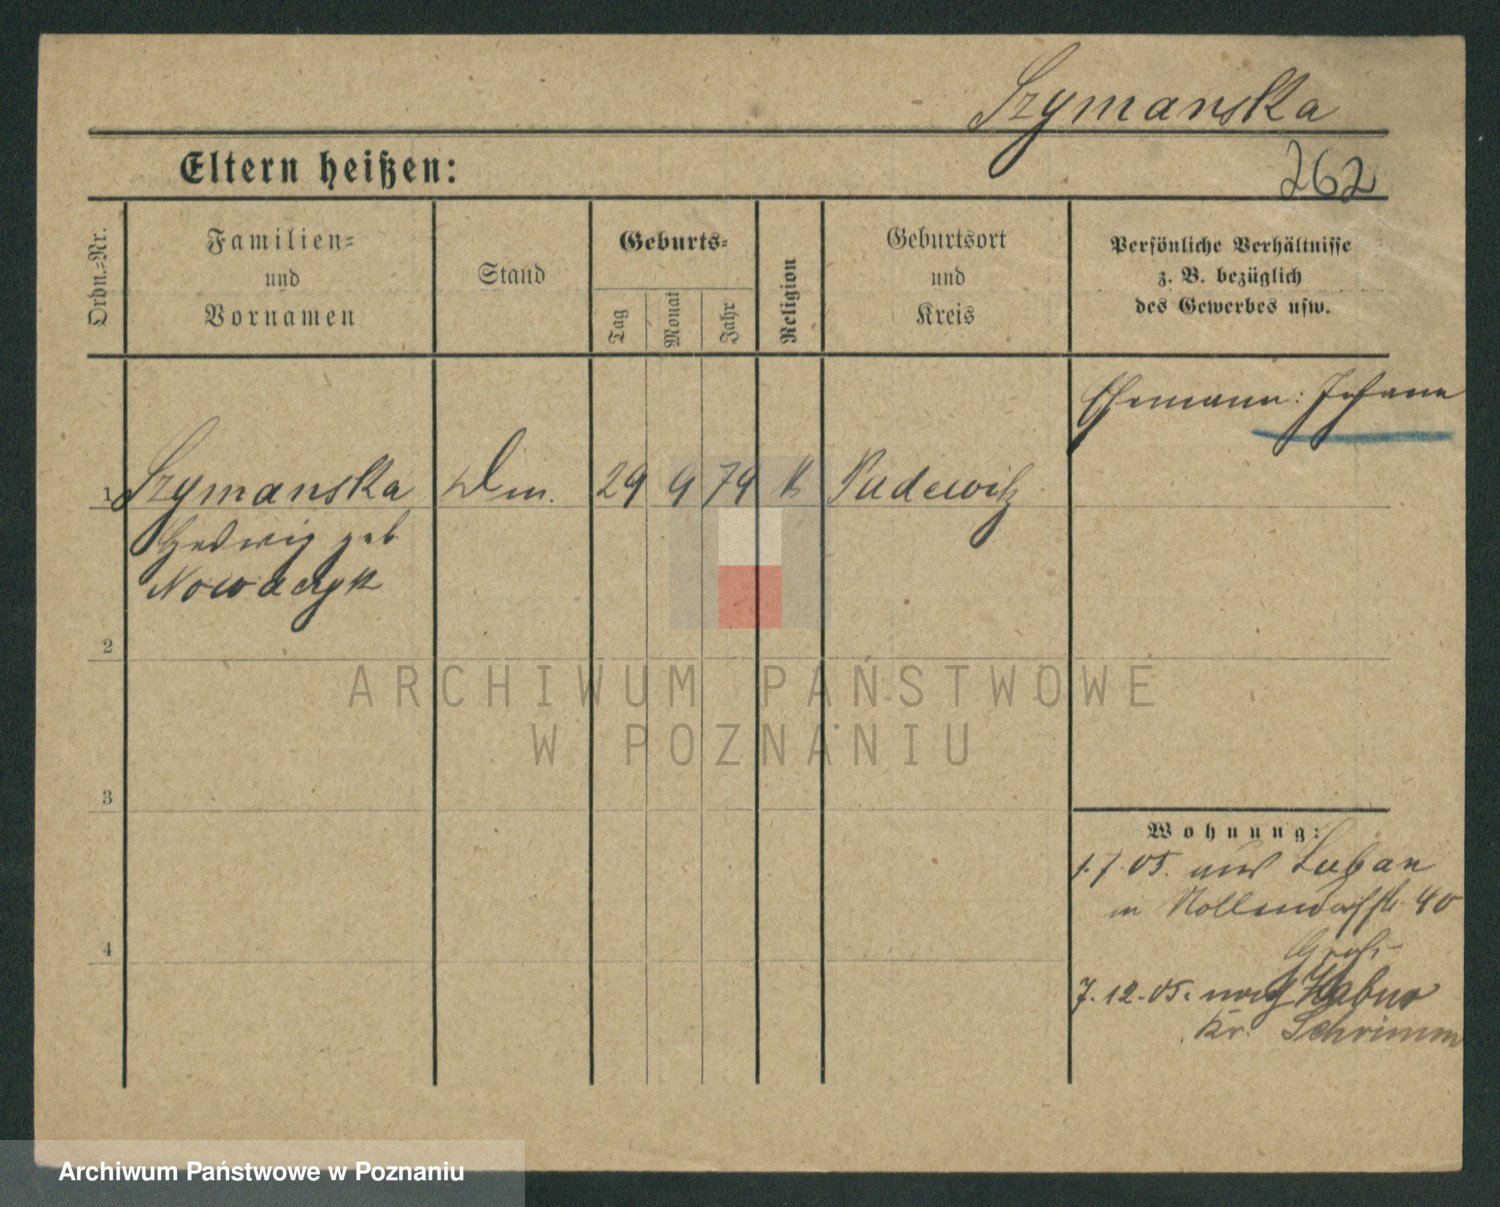 Szymanska
Eltern heißen:
262
Ordn.-Nr.
Familien-
und
Vornamen
Stand
Geburts-
Tag
Monat
Jahr
Religion
Geburtsort
und
Kreis
Persönliche Verhältnisse
z. B. bezüglich
des Gewerbes usw.
Ehemann: Johann
1 Szymanska 29 9 79 k Pudewitz
Hedwig geb
Nowaczyk
2
ARCHIWUM PAŃSTWOWE
W POZNANIU
3
Wohnung:
1.7.05. aus Luban
in Nollendorfstr. 40
4
Groß-
7.12.05. nach
Kr. Schrimm
Archiwum Państwowe w Poznaniu